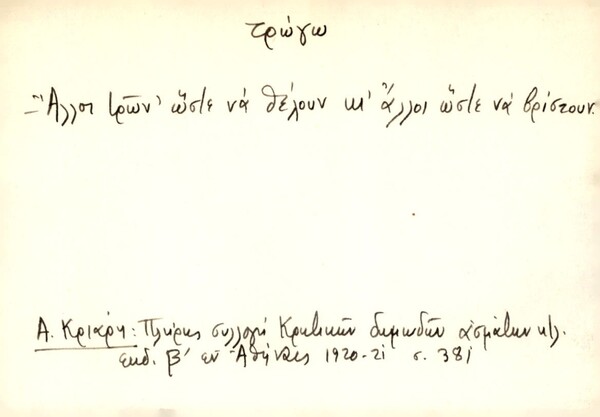 τρώγω
–Ἄλλοι τρῶν' ὥστε νά θέλουν κι' ἄλλοι ὥστε νά βρίστουν.
Α. Κριάρη: Πλήρης συλλογή Κρητικῶν δημωδῶν ᾀσμάτων κτλ.
ἐκδ. β' ἐν Ἀθήναις 1920-21 σ. 381